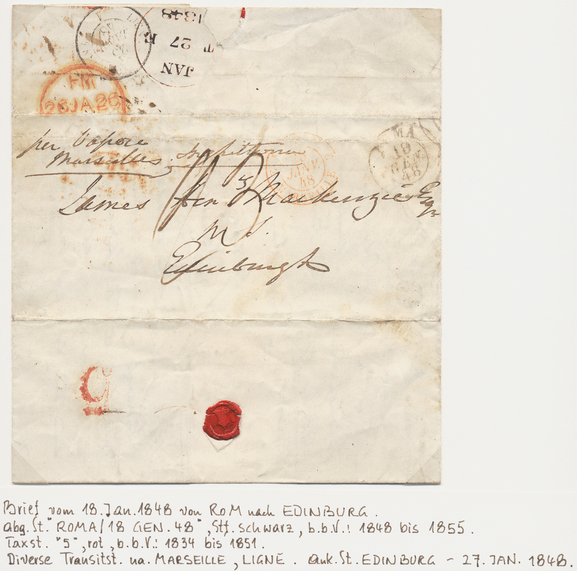 1848
T 27 E
JAN
PM
28 JA 26
per Vapore
Marseilles
MA
48
48
James Mackenzie Esqr
Edinburgh
5
Brief vom 18.Jan.1848 von ROM nach EDINBURG.
abg.St. "ROMA/18 GEN. 48", Stf. schwarz, b.b.V.: 1848 bis 1855.
Taxst. "5", rot, b.b.V.: 1834 bis 1851.
Diverse Transitst. ua. MARSEILLE, LIGNE. ank.St. EDINBURG - 27. JAN. 1848.